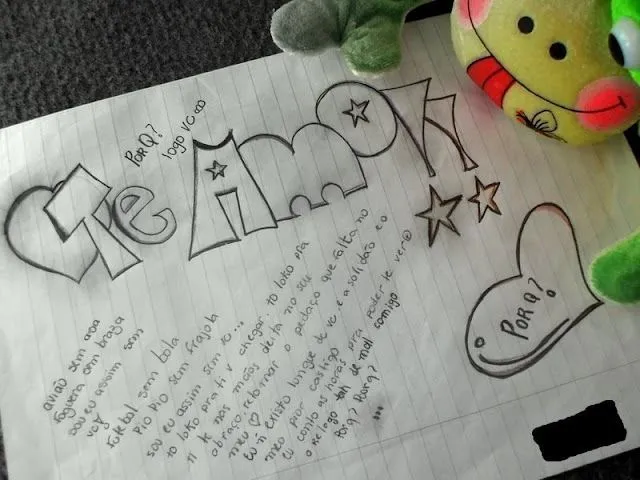 PorQ?
logo vc ∞
Te Amo
avião sem asa
fogueira sem braza
sou eu assim sem
voçy
futebol sem bola
piu piu sem frajola
sou eu assim sem vc...
to loko pra ti v chegar, to loko pra
ti te nas mãos deita no seu
abraço, retornar o pedaço que falta no
meu ♡
Eu ñ existo lungue de vc. e a solidão é o
meu pior castigo
Eu conto as horas pra poder te ver
o relogo tah de mal comigo
Porq? Porq?
...
PorQ?